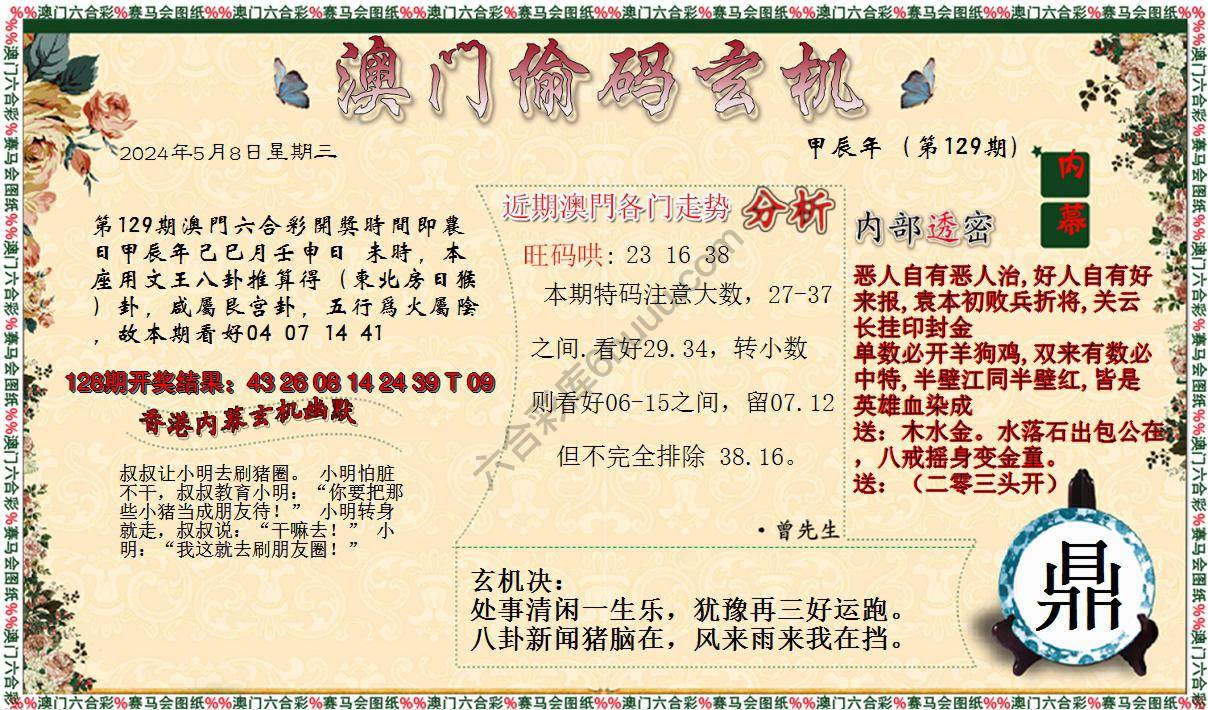 %%澳门六合彩%赛马会图纸%%澳门六合彩%赛马会图纸%%澳门六合彩%赛马会图纸%%澳门六合彩%赛马会图纸%%澳门六合彩%赛马会图纸%%澳门六合彩%赛马会图纸%%
澳门偷码玄机
2024年5月8日星期三
甲辰年（第129期）
内幕
第129期澳門六合彩開獎時間即農
日甲辰年己巳月壬申日 未時，本
座用文王八卦推算得（東北房日猴
）卦，咸屬艮宫卦，五行爲火屬陰
，故本期看好04 07 14 41
128期开奖结果：43 26 08 14 24 39 T 09
香港内幕玄机幽默
叔叔让小明去刷猪圈。 小明怕脏
不干，叔叔教育小明：“你要把那
些小猪当成朋友待！” 小明转身
就走，叔叔说：“干嘛去！” 小
明：“我这就去刷朋友圈！”
近期澳門各门走势 分析
旺码哄: 23 16 38
本期特码注意大数，27-37
之间.看好29.34，转小数
则看好06-15之间，留07.12
但不完全排除 38.16。
·曾先生
内部透密
恶人自有恶人治,好人自有好
来报,袁本初败兵折将,关云
长挂印封金
单数必开羊狗鸡,双来有数必
中特,半壁江同半壁红,皆是
英雄血染成
送：木水金。水落石出包公在
，八戒摇身变金童。
送：（二零三头开）
玄机决：
处事清闲一生乐，犹豫再三好运跑。
八卦新闻猪脑在，风来雨来我在挡。
鼎
%%澳门六合彩%赛马会图纸%%澳门六合彩%赛马会图纸%%澳门六合彩%赛马会图纸%%澳门六合彩%赛马会图纸%%澳门六合彩%赛马会图纸%%澳门六合彩%赛马会图纸%%